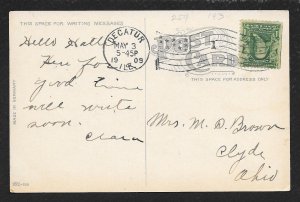 THIS SPACE FOR WRITING MESSAGES
DECATUR
MAY 3
5-45P
1909
ILL.
1
POST
CARD
THIS SPACE FOR ADDRESS ONLY
MADE IN GERMANY
Hello Hall
Here for
good time
will write
soon.
Clara
Mrs. M. D. Brown
Clyde
Ohio